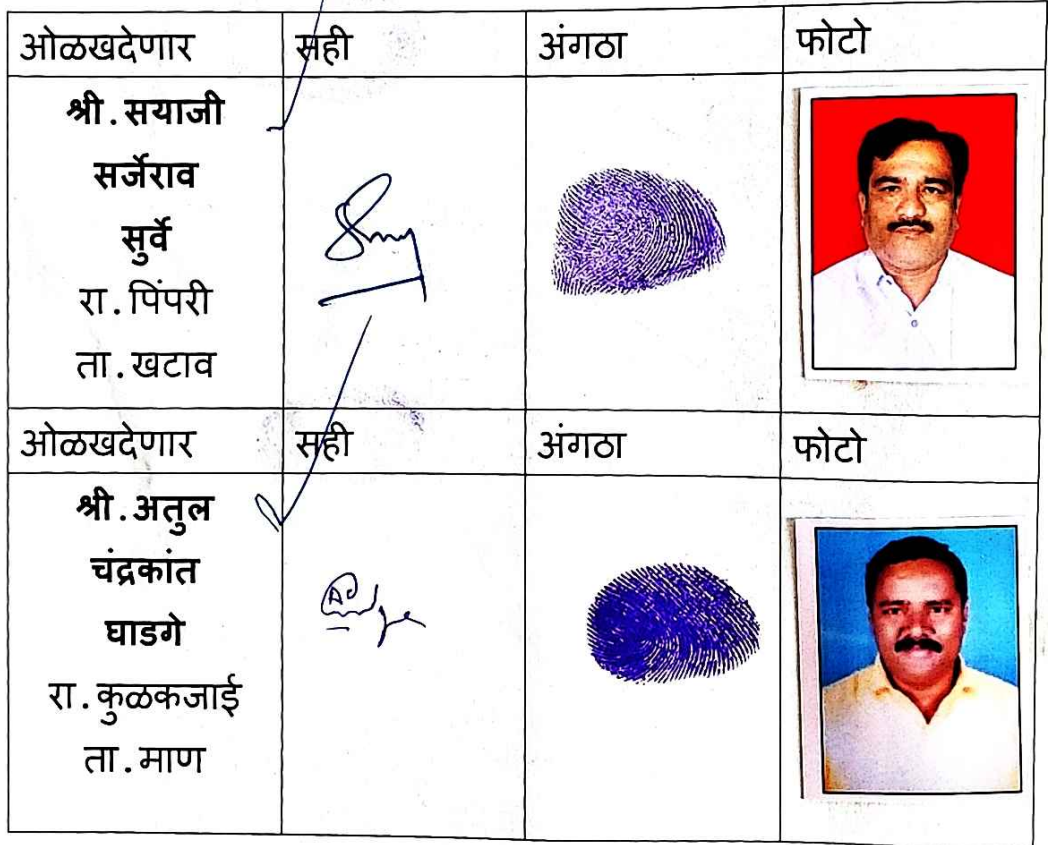 ओळखदेणार सही अंगठा फोटो
श्री.सयाजी
सर्जेराव
सुर्वे
रा.पिंपरी
ता.खटाव
ओळखदेणार सही अंगठा फोटो
श्री.अतुल
चंद्रकांत
घाडगे
रा.कुळकजाई
ता.माण